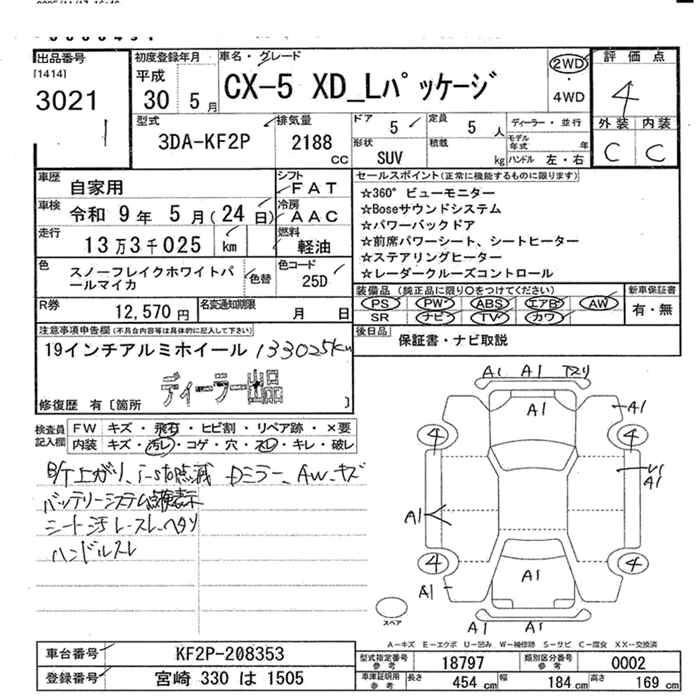 出品番号
[1414]
3021
初度登録年月
平成
30 5月
車名・グレード
CX-5 XD_Lパッケージ
2WD
・
4WD
評価点
4
外装 内装
C C
型式
3DA-KF2P
排気量
2188
CC
ドア
5
定員
5 人
形状
SUV
積載
kg
ディーラー・並行
モデル年式 年
ハンドル 左・右
車歴
自家用
シフト
FAT
車検
令和 9年 5月(24日)
冷房
AAC
走行
13万3千025 km
燃料
軽油
色
スノーフレイクホワイトパールマイカ
色替
色コード
25D
R券
12,570円
名変通知期限
月 日
セールスポイント(正常に機能するものに限ります)
☆360°ビューモニター
☆Boseサウンドシステム
☆パワーバックドア
☆前席パワーシート、シートヒーター
☆ステアリングヒーター
☆レーダークルーズコントロール
装備品(純正品に限り○をつけてください)
PS PW ABS エアB AW
SR ナビ TV カワ
新車保証書
有・無
後日品
保証書・ナビ取説
注意事項申告欄(不具合内容等は具体的に記入して下さい)
19インチアルミホイール 133025km
ディーラー出品
修復歴 有〔箇所 〕
検査員記入欄
FW キズ・飛石・ヒビ割・リペア跡・×要
内装 キズ・汚レ・コゲ・穴・スレ・キレ・破レ
B/T上がり、i-stop点滅 Dミラー、AWキズ
バッテリーシステム点検表示
シート汚レ・スレ・ヘタリ
ハンドルスレ
A1 A1
A1
A1
4 4
A1
A1
4 4
A1
A1
A1 A1
スペア
A-キズ E-エクボ U-凹み W-補修跡 S-サビ C-腐食 XX-交換済
車台番号
KF2P-208353
登録番号
宮崎 330 は 1505
型式指定番号
参考
18797
類別区分番号
参考
0002
車庫証明用
参考
長さ
454 cm
幅
184 cm
高さ
169 cm